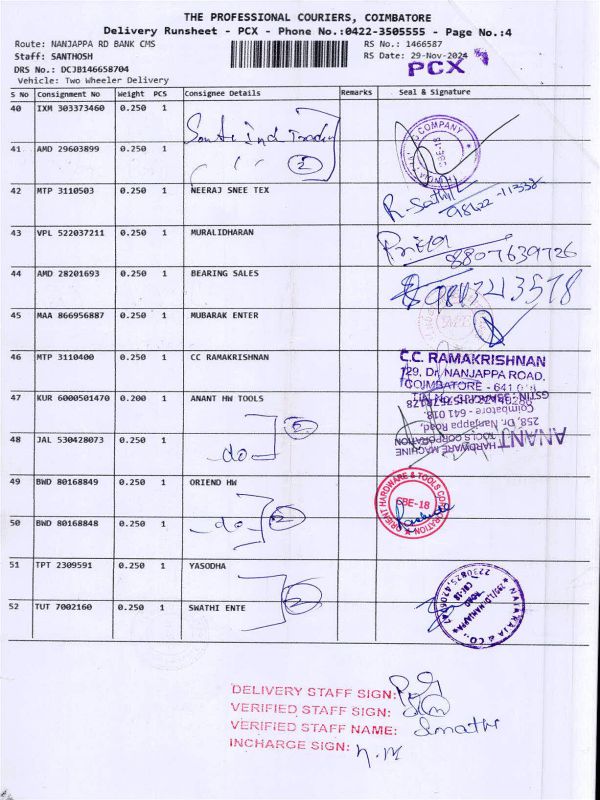 THE PROFESSIONAL COURIERS, COIMBATORE
Delivery Runsheet - PCX - Phone No.:0422-3505555 - Page No.:4
Route: NANJAPPA RD BANK CMS RS No.: 1466587
Staff: SANTHOSH RS Date: 29-Nov-2024
DRS No.: DCJB146658704 PCX
Vehicle: Two Wheeler Delivery
S No Consignment No Weight PCS Consignee Details Remarks Seal & Signature
40 IXM 303373460 0.250 1
COMPANY
CBE-18
41 AMD 29603899 0.250 1 2
42 MTP 3110503 0.250 1 NEERAJ SNEE TEX
R. Sathi
43 VPL 522037211 0.250 1 MURALIDHARAN Priya
8807639726
44 AMD 28201693 0.250 1 BEARING SALES
45 MAA 866956887 0.250 1 MUBARAK ENTER
46 MTP 3110400 0.250 1 CC RAMAKRISHNAN
C.C. RAMAKRISHNAN
129, Dr. NANJAPPA ROAD,
COIMBATORE - 641 018
47 KUR 6000501470 0.200 1 ANANT HW TOOLS
Coimbatore - 641 018.
258, Dr. Nanjappa Road,
HARDWARE MACHINE
TOOLS CORPORATION
ANANT
48 JAL 530428073 0.250 1 do
49 BWD 80168849 0.250 1 ORIEND HW
ORIENT HARDWARE & TOOLS CORPORATION
CBE-18
50 BWD 80168848 0.250 1 do 2
51 TPT 2309591 0.250 1 YASODHA
52 TUT 7002160 0.250 1 SWATHI ENTE 2
NATARAJA & CO.
DELIVERY STAFF SIGN:
VERIFIED STAFF SIGN:
VERIFIED STAFF NAME:
INCHARGE SIGN: n.m